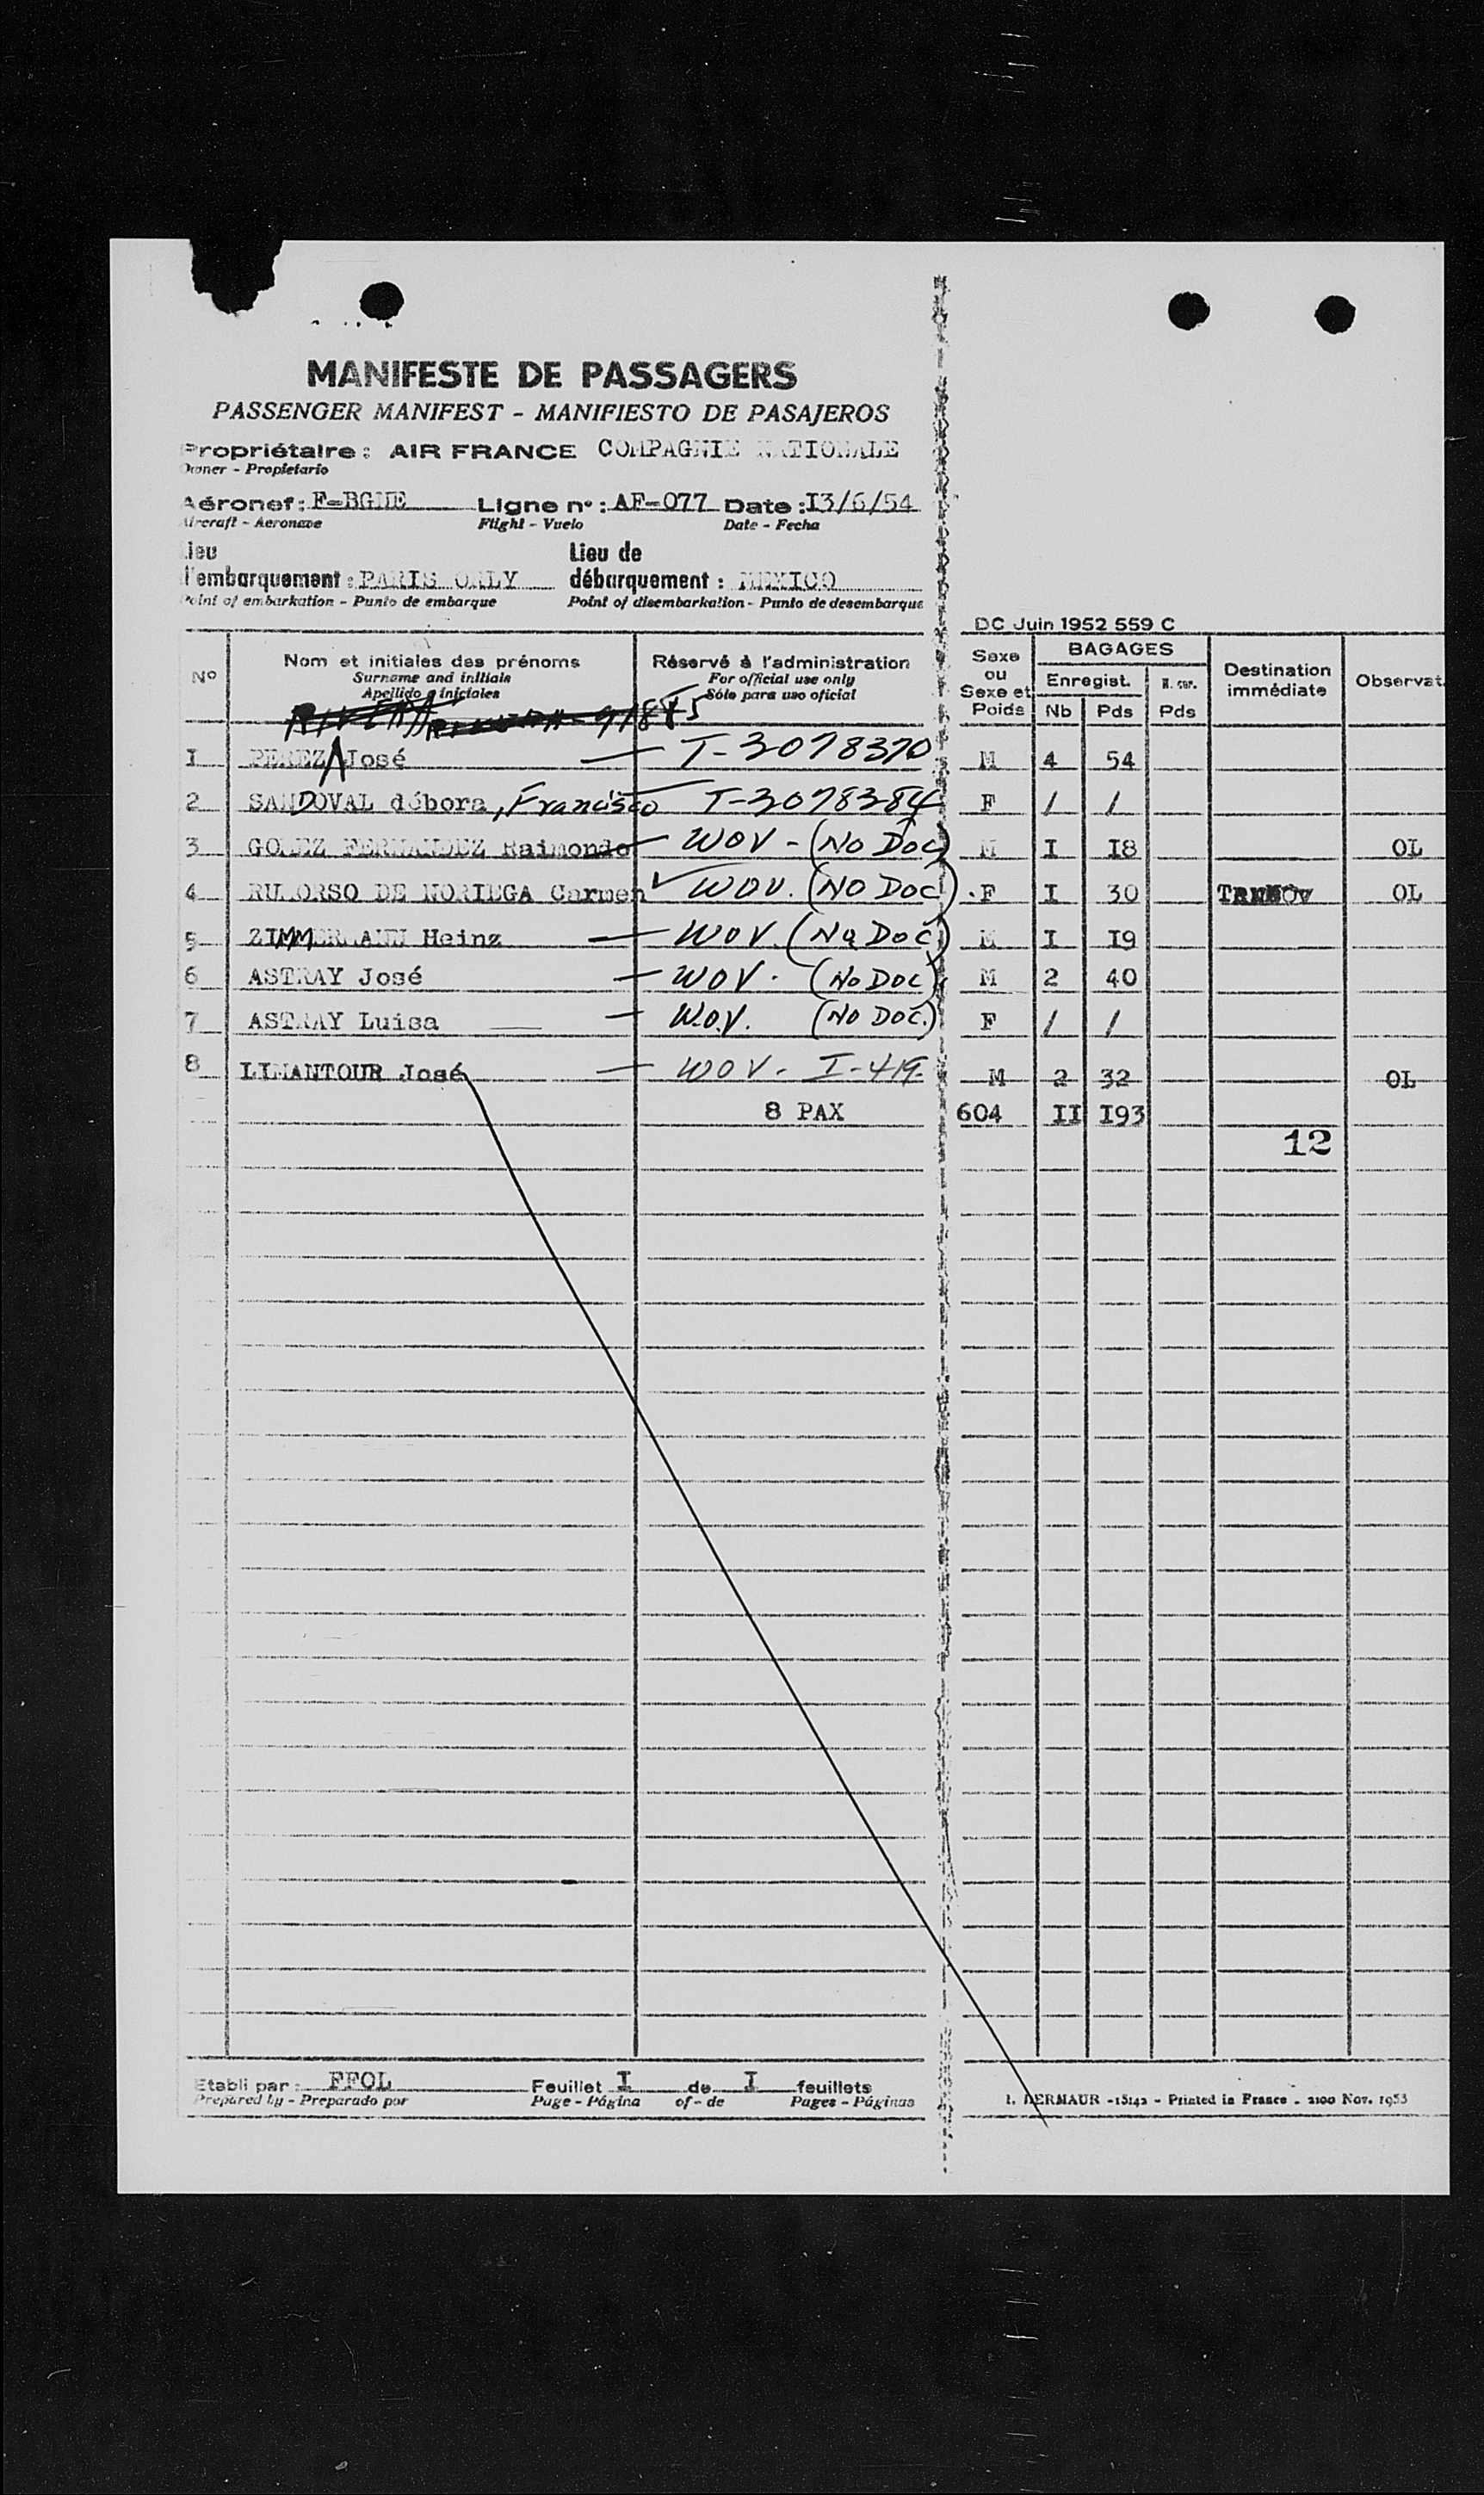 MANIFESTE DE PASSAGERS
PASSENGER MANIFEST - MANIFIESTO DE PASAJEROS
Propriétaire : AIR FRANCE COMPAGNIE NATIONALE
Owner - Propietario
Aéronef : Ligne n° : AF-077 Date : I3/6/54
Aircraft - Aeronave Flight - Vuelo Date - Fecha
Lieu Lieu de
d'embarquement : PARIS ORLY débarquement : MEXICO
Point of embarkation - Punto de embarque Point of disembarkation - Punto de desembarque
DC Juin 1952 559 C
N° Nom et initiales des prénoms Réservé à l'administration Sexe ou Sexe et Poids BAGAGES Destination immédiate Observat.
Surname and initials For official use only Enregist. N. enr.
Apellido e iniciales Sólo para uso oficial Nb Pds Pds
RIVERA
I PEREZ José — T-3078370 M 4 54
2 SANDOVAL débora, Francisco T-3078384 F / /
3 GOMEZ FERNANDEZ Raimondo — WOV - (NO DOC) M I I8 OL
4 DE NORIEGA Carmen WOV. (NO DOC) F I 30 OL
5 ZIMMERMANN Heinz — WOV. (NO DOC) M I I9
6 ASTRAY José — WOV. (NO DOC) M 2 40
7 ASTRAY Luisa — W.O.V. (NO DOC.) F / /
8 LIMANTOUR José — WOV. I-419. M 2 32 OL
8 PAX 604 II I93
12
Etabli par : FFOL Feuillet I de I feuillets
Prepared by - Preparado por Page - Página of - de Pages - Páginas
I. DERMAUR - 15142 - Printed in France - 2100 Nov. 1953